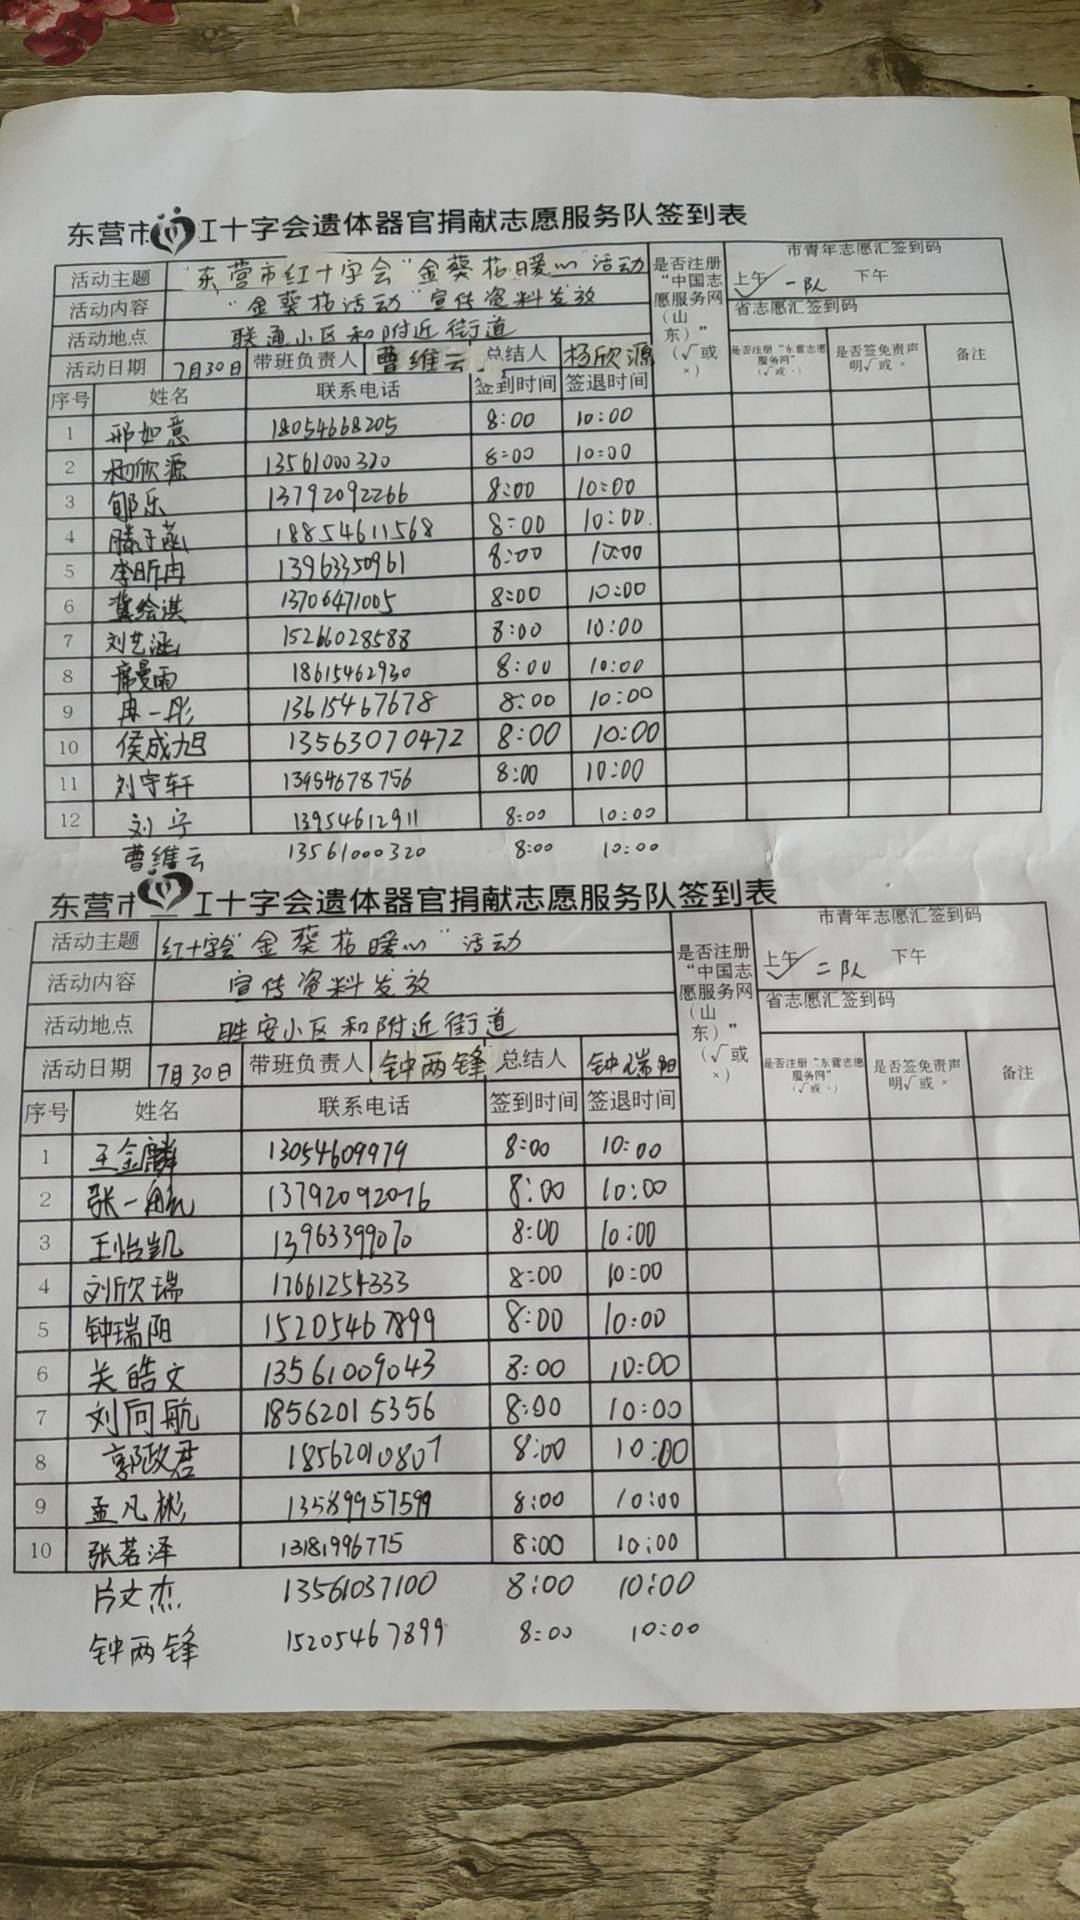 东营市红十字会遗体器官捐献志愿服务队签到表
活动主题 "东营市红十字会"金葵花暖心"活动 是否注册“中国志愿服务网（山东）”（√或×） 市青年志愿汇签到码
上午 √ 一队 下午
活动内容 "金葵花活动"宣传资料发放 省志愿汇签到码
活动地点 联通小区和附近街道
活动日期 7月30日 带班负责人 曹维云 总结人 杨欣源 是否注册“东营志愿服务网”（√或×） 是否签免责声明√或× 备注
序号 姓名 联系电话 签到时间 签退时间
1 邢如意 18054668205 8:00 10:00
2 杨欣源 13561000320 8:00 10:00
3 郇乐 13792092266 8:00 10:00
4 滕子菡 18854611568 8:00 10:00
5 李昕冉 13963350961 8:00 10:00
6 冀绘淇 13706471005 8:00 10:00
7 刘艺涵 15266028588 8:00 10:00
8 席曼雨 18615462930 8:00 10:00
9 冉一彤 13615467678 8:00 10:00
10 侯成旭 13563070472 8:00 10:00
11 刘宇轩 13954678756 8:00 10:00
12 刘宁 13954612911 8:00 10:00
曹维云 13561000320 8:00 10:00
东营市红十字会遗体器官捐献志愿服务队签到表
活动主题 红十字会"金葵花暖心"活动 是否注册“中国志愿服务网（山东）”（√或×） 市青年志愿汇签到码
上午 √ 二队 下午
活动内容 宣传资料发放 省志愿汇签到码
活动地点 胜安小区和附近街道
活动日期 7月30日 带班负责人 钟两锋 总结人 钟瑞阳 是否注册“东营志愿服务网”（√或×） 是否签免责声明√或× 备注
序号 姓名 联系电话 签到时间 签退时间
1 王金麟 13054609979 8:00 10:00
2 张一航 13792092076 8:00 10:00
3 王怡凯 13963399070 8:00 10:00
4 刘欣瑞 17661254333 8:00 10:00
5 钟瑞阳 15205467899 8:00 10:00
6 关皓文 13561009043 8:00 10:00
7 刘同航 18562015356 8:00 10:00
8 郭政君 18562010807 8:00 10:00
9 孟凡彬 13589957599 8:00 10:00
10 张茗泽 13181996775 8:00 10:00
文杰 13561037100 8:00 10:00
钟两锋 15205467899 8:00 10:00